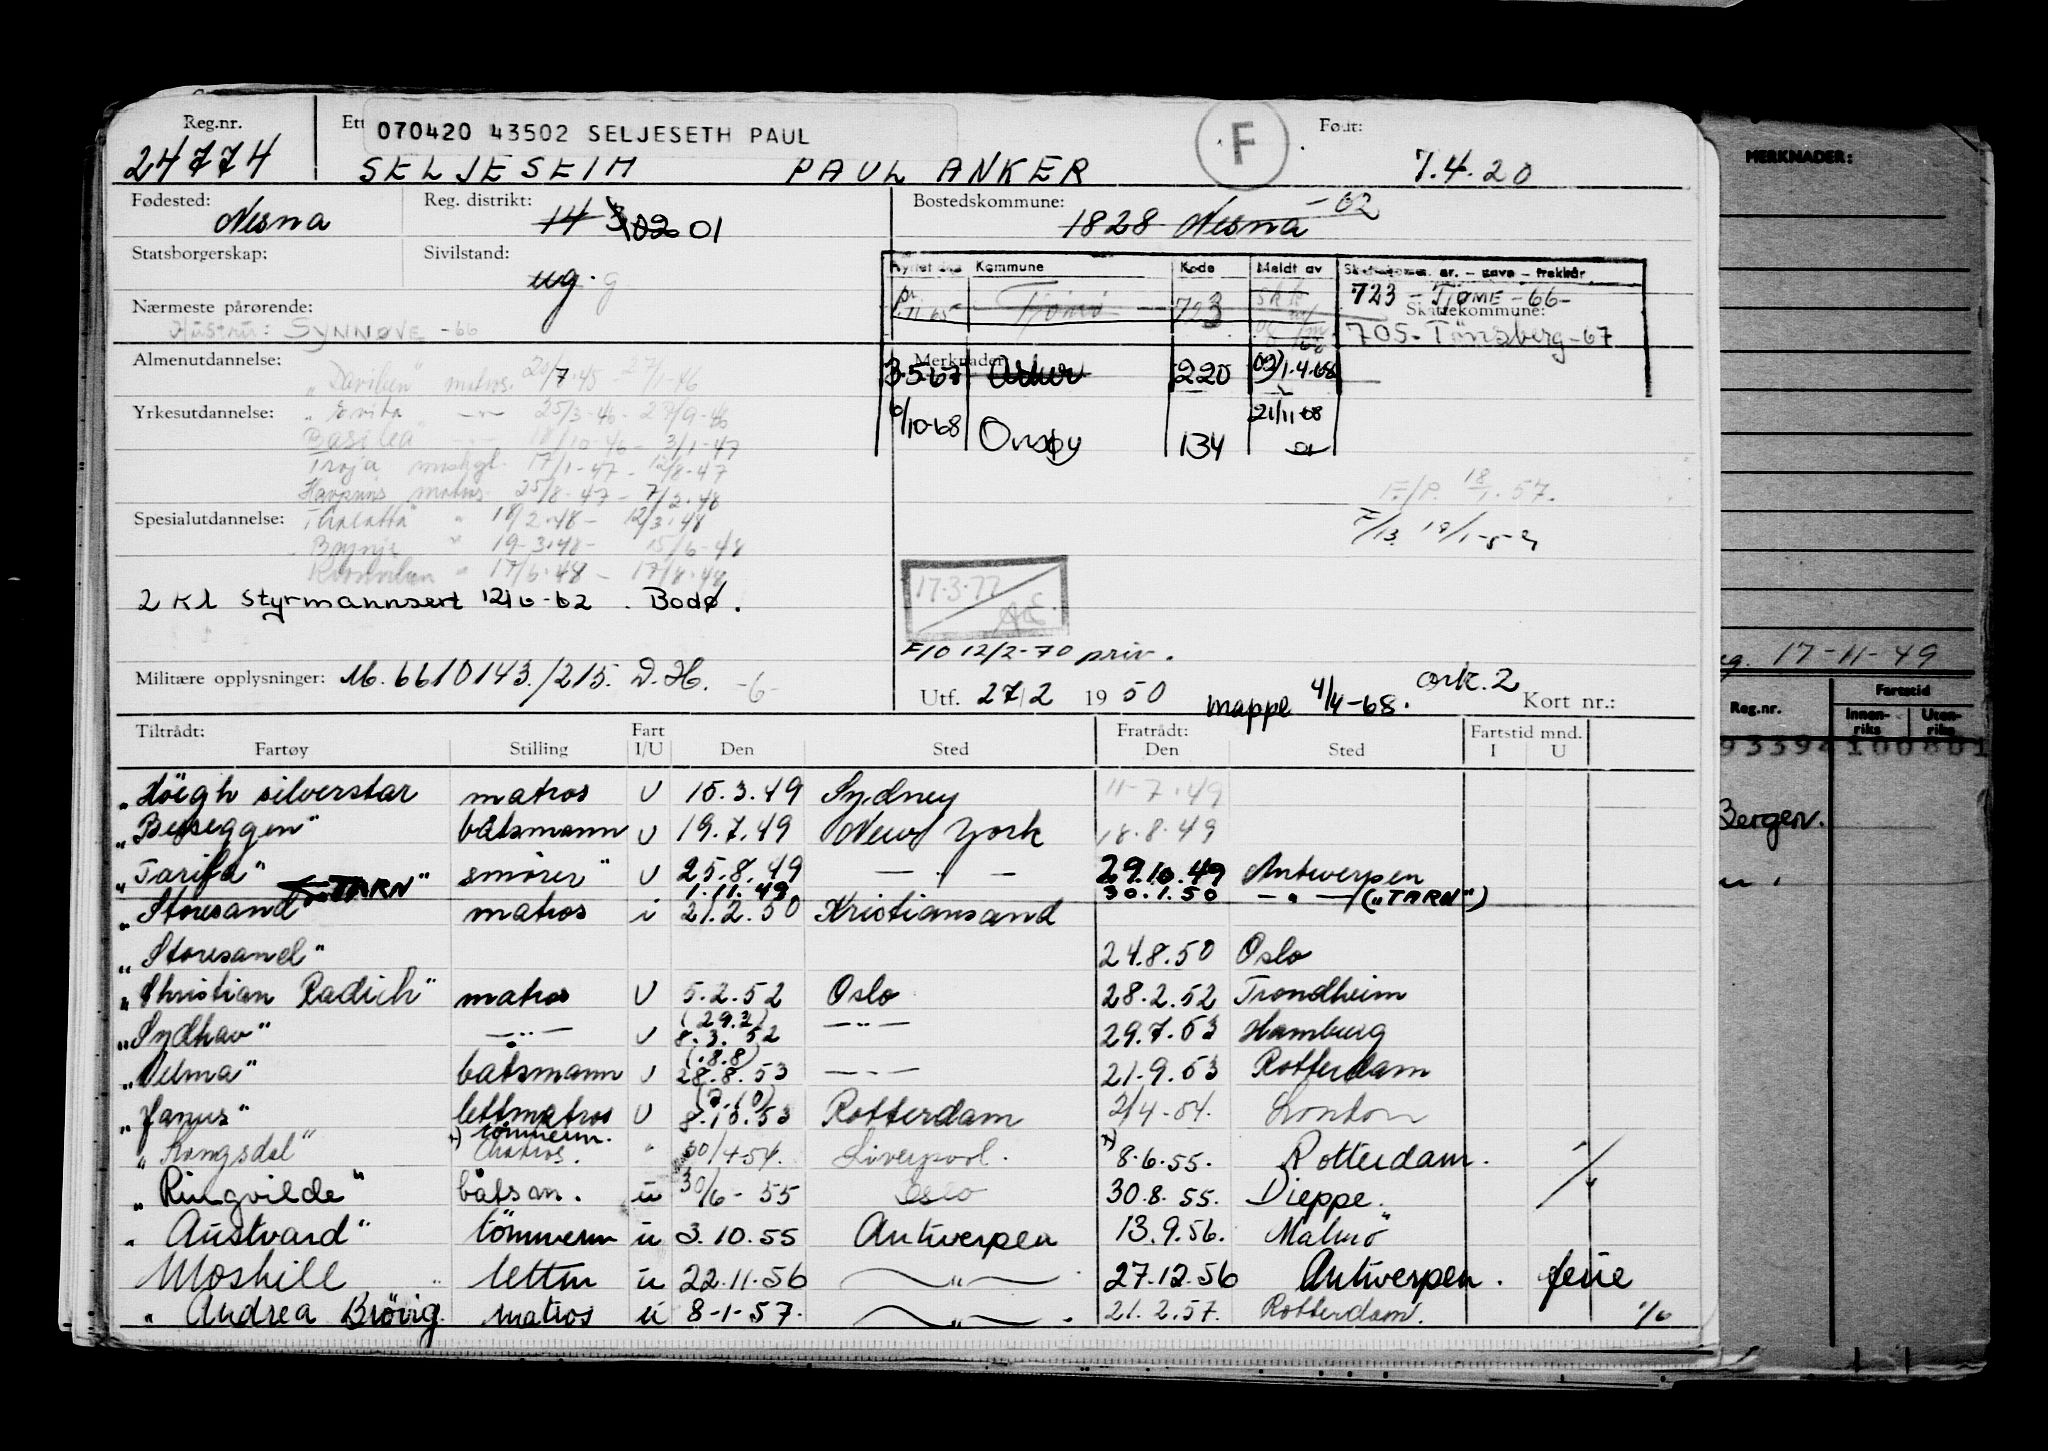 Reg.nr. Ett 070420 43502 SELJESETH PAUL F Født:
24774 SELJESETH PAUL ANKER 7.4.20
Fødested: Reg. distrikt: Bostedskommune:
Nesna 14 3 02 01 1828 Nesna -62
Statsborgerskap: Sivilstand:
ug. g
Flyttet Kommune Kode Meldt av
Nærmeste pårørende: 723 - TJØME -66-
Hustru: SYNNØVE -66 Skattekommune:
11 65 Tjømø 723 705- Tönsberg -67
Almenutdannelse: Merknader
3.5.67 Asker 220 1.4.68
matros. 20/7.45 - 27/1-46
Yrkesutdannelse: "Evita — " — 25/3-46 - 27/9-46
6/10-68 Onsøy 134 21/11-68
Basilea" — " — 18/10-46 - 3/1-47
Troja 17/1-47 - 12/8-47
Havprins matros 25/8-47 - 7/2.48
F./P. 18/1.57.
Spesialutdannelse: Thalatta" " 18/2.48 - 12/3.48
Brynje " 19-3.48 - 15/6-48
" 17/6.48 - 17/8.48
17.3.77
2 Kl Styrmannsert 12/6-62 . Bodø.
F/O 12/2-70 priv.
Militære opplysninger: M. 6610143./215. D.H. -6- Utf. 27/2 1950 mappe 4/4-68. ork. 2 Kort nr.:
Tiltrådt: Fart Fratrådt: Fartstid mnd.
Fartøy Stilling I/U Den Sted Den Sted I U
"Höegh silverstar matros U 15.3.49 Sydney 11-7.49
"Besseggen" båtsmann U 19.7.49 New York 18.8.49
"Tarifa" smörer" U 25.8.49 — " — 29.10.49 Antwerpen
← "TARN" 1.11.49 30.1.50 — " — ("TARN")
"Storesand matros i 21.2.50 Kristiansand
"Storesand" 24.8.50 Oslo
"Christian Radich" matros U 5.2.52 Oslo 28.2.52 Trondheim
(29.2)
"Sydhav" — " — U 8.3.52 — " — 29.7.53 Hamburg
(8.8)
"Velma" båtsmann U 28.8.53 — " — 21.9.53 Rotterdam
(2.10)
"Janus" lettmatros U 8.10.53 Rotterdam 2/4-54. London
x) tömmerm.
"Kongsdal" matros. " 30/4-54. Liverpool. x) 8.6.55. Rotterdam.
"Ringvilde" båtsm. u 30/6-55 Oslo 30.8.55. Dieppe.
" Austvard" tömmerm u 3.10.55 Antwerpen 13.9.56. Malmö
Moshill " lettm u 22.11.56 — " — 27.12.56 Antwerpen. feie
" Andrea Brövig matros u 8-1-57. — " — . 21.2.57. Rotterdam. 1/6
MERKNADER:
17-11-49
Fartstid
Reg.nr. Innen-riks Uten-riks
93394 100801
Bergen.